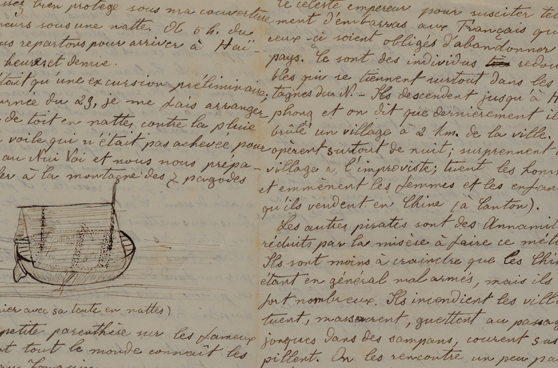 bien protégé sous ma couverture
sous une natte. A 6 h. du
us repartons pour arriver à Hai-
heures et demie.
était qu'une excursion préliminaire,
urnée du 23, je me fais arranger
de toit en nattes, contre la pluie
voile qui n'était pas achevée pour
au Nui Voi et nous nous prépa-
er à la montagne des 7 pagodes
ier avec sa tente en nattes)
petite parenthèse sur les fameux
t tout le monde connaît les
le céleste empereur pour susciter
ment d'embarras aux Français qu
ceux-ci soient obligés d'abandonner
pays. Ce sont des individus redou
bles qui se tiennent surtout dans les
tagnes du N. - Ils descendent jusqu'à
phong et on dit que dernièrement il
brûlé un village à 2 km. de la ville
opèrent surtout de nuit; surprennent
village à l'improviste; tuent les hom
et emmènent les femmes et les enfan
qu'ils vendent en Chine (à Canton).
Les autres pirates sont des Annami
réduits par la misère à faire ce méti
Ils sont moins à craindre que les Chi
étant en général mal armés, mais ils
fort nombreux. Ils incendient les vill
tuent, massacrent, guettent au passag
jonques dans des sampans, courent sus
pillent. On les rencontre un peu pa